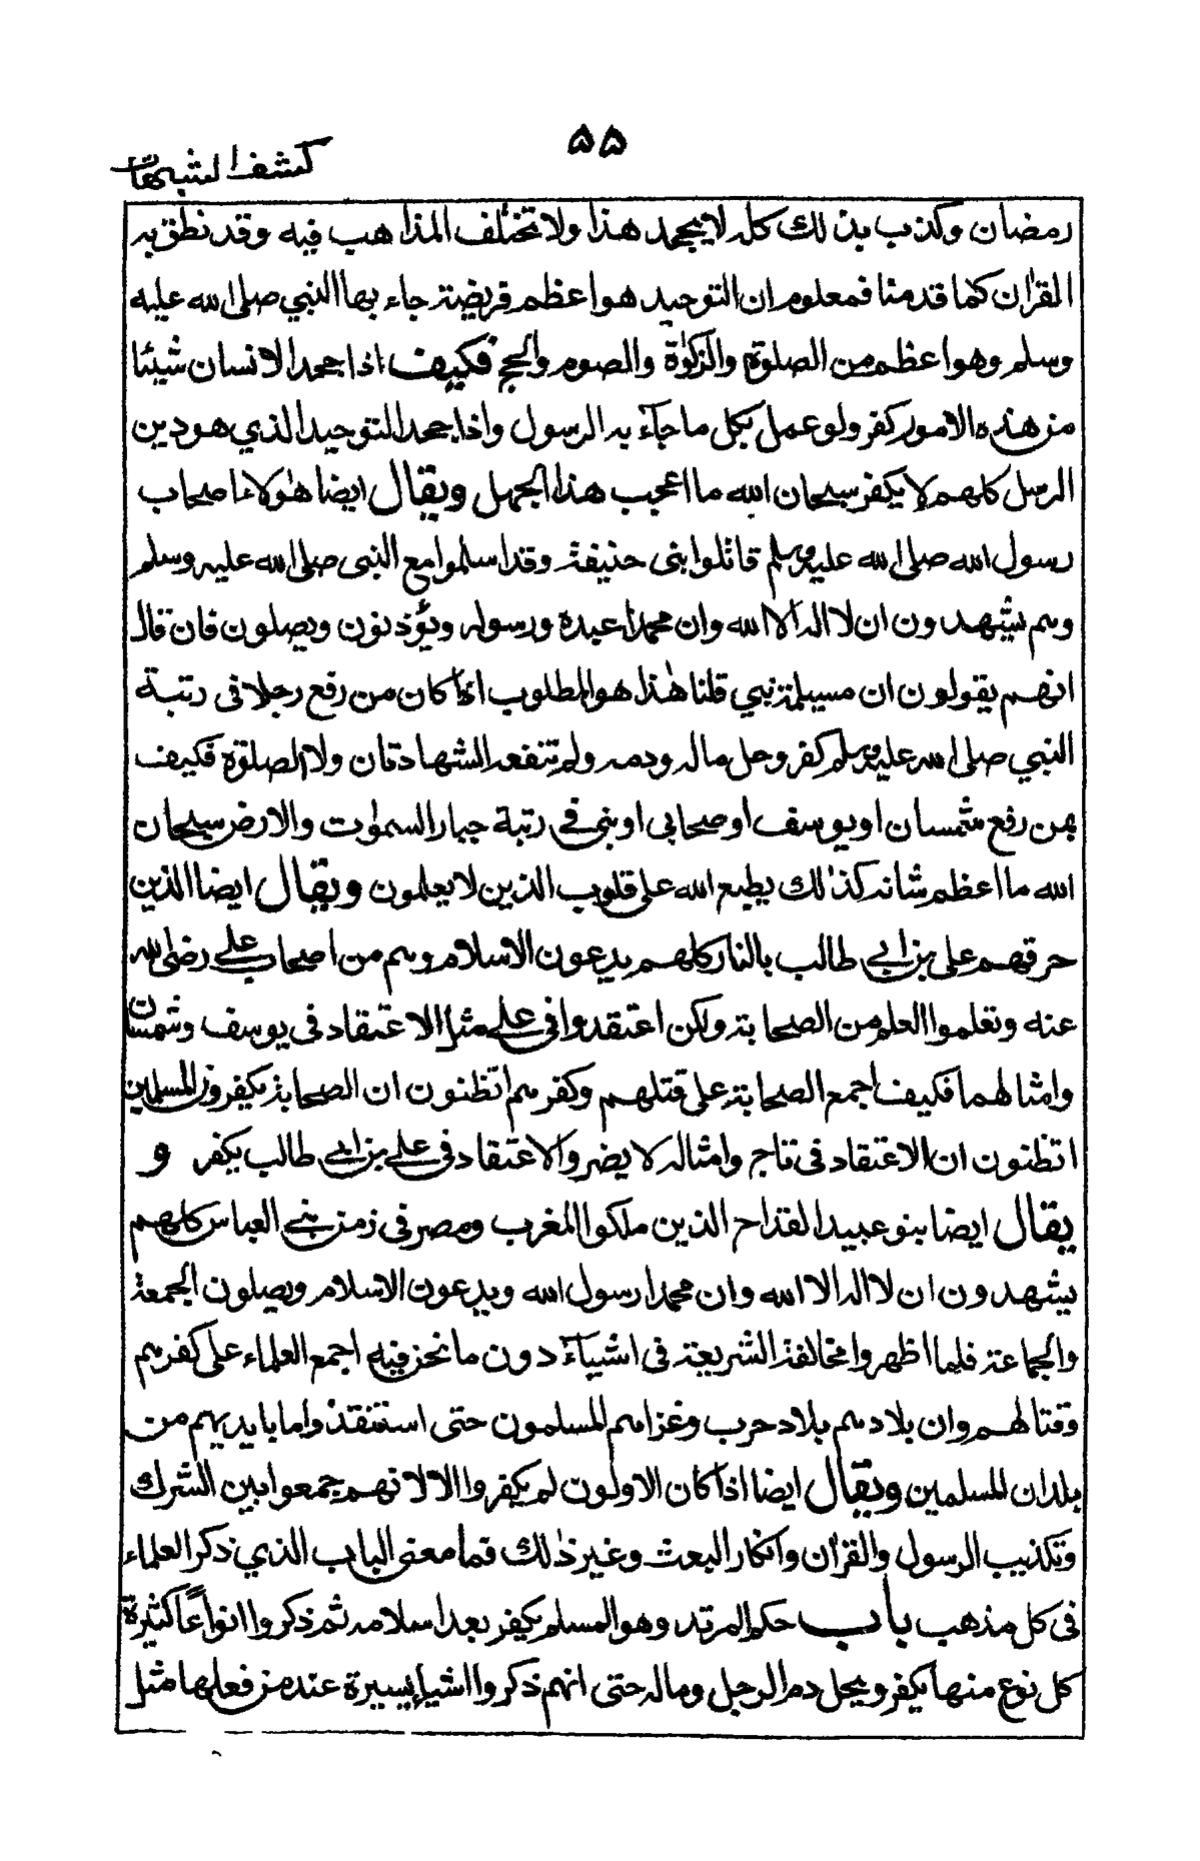 ۵۵
كشف الشبهات
رمضان وكذب بذلك كله لا يجحد هذا ولا تختلف المذاهب فيه وقد نطق به
القراٰن كما قدمنا فمعلوم ان التوحيد هو اعظم فريضة جاء بها النبي صلى الله عليه
وسلم وهو اعظم من الصلوة والزكوٰة والصوم والحج فكيف اذا جحد الانسان شيئا
من هذه الامور كفر ولو عمل بكل ما جآء به الرسول واذا جحد التوحيد الذي هو دين
الرسل كلهم لا يكفر سبحان الله ما اعجب هذا الجهل ويقال ايضا هٰولاء اصحاب
رسول الله صلى الله عليه وسلم قاتلوا بنى حنيفة وقد اسلموا مع النبى صلى الله عليه وسلم
وهم يشهدون ان لا اله الا الله وان محمدا عبده ورسوله ويؤذنون ويصلون فان قال
انهم يقولون ان مسيلمة نبي قلنا هٰذا هو المطلوب اذا كان من رفع رجلا فى رتبة
النبي صلى الله عليه وسلم كفر وحل ماله ودمه ولم تنفعه الشهادتان ولا الصلوٰة فكيف
بمن رفع شمسان او يوسف او صحابي او نبى في رتبة جبار السمٰوٰت والارض سبحان
الله ما اعظم شانه كذٰلك يطبع الله على قلوب الذين لا يعلمون ويقال ايضا الذين
حرقهم على بن ابي طالب بالنار كلهم يدعون الاسلام وهم من اصحاب علي رضى الله
عنه وتعلموا العلم من الصحابة ولكن اعتقدوا فى علي مثل الاعتقاد فى يوسف وشمسان
وامثالهما فكيف اجمع الصحابة على قتلهم وكفرهم اتظنون ان الصحابة يكفرون المسلمين
اتظنون ان الاعتقاد فى تاج وامثاله لا يضر والاعتقاد فى علي بن ابي طالب يكفر و
يقال ايضا بنو عبيد القداح الذين ملكوا المغرب ومصر فى زمن بني العباس كلهم
يشهدون ان لا اله الا الله وان محمدا رسول الله ويدعون الاسلام ويصلون الجمعة
والجماعة فلما اظهروا مخالفة الشريعة فى اشيآء دون ما نحن فيه اجمع العلماء على كفرهم
وقتالهم وان بلادهم بلاد حرب وغزاهم المسلمون حتى استنقذوا ما بايديهم من
بلدان المسلمين ويقال ايضا اذا كان الاولون لم يكفروا الا لانهم جمعوا بين الشرك
وتكذيب الرسول والقراٰن وانكار البعث وغير ذٰلك فما معنى الباب الذي ذكر العلماء
فى كل مذهب باب حكم المرتد وهو المسلم يكفر بعد اسلامه ثم ذكروا انواعًا كثيرة
كل نوع منها يكفر ويحل دم الرجل وماله حتى انهم ذكروا اشياء يسيرة عند من فعلها مثل